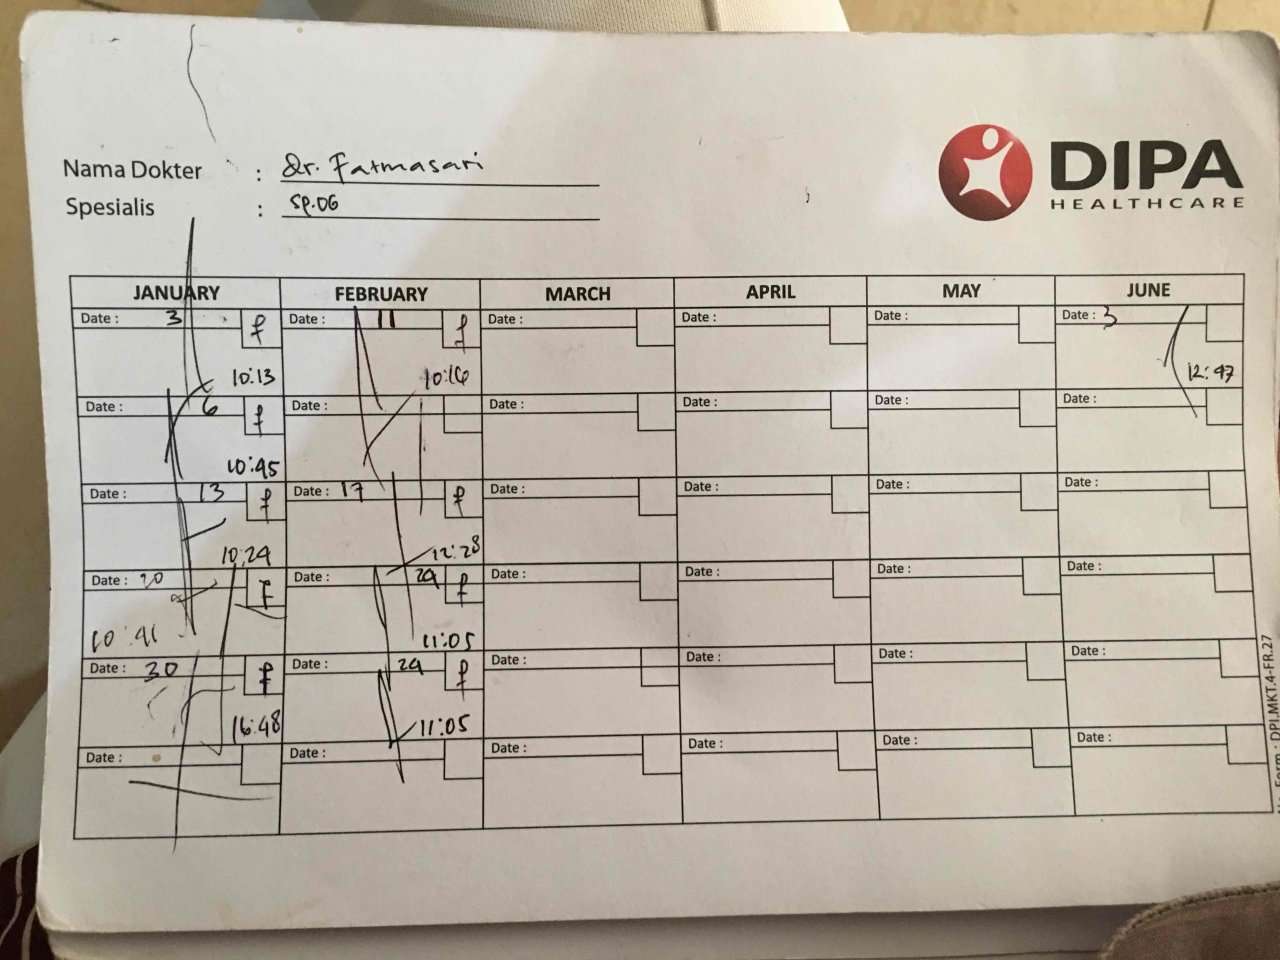 Nama Dokter : dr. Fatmasari
Spesialis : SP.OG
DIPA
HEALTHCARE
JANUARY FEBRUARY MARCH APRIL MAY JUNE
Date : 3 f Date : 11 f Date : Date : Date : Date : 3
10:13 10:16 12:47
Date : 6 f Date : Date : Date : Date : Date :
10:45
Date : 13 f Date : 17 f Date : Date : Date : Date :
10:24 12:28
Date : 20 f Date : 24 f Date : Date : Date : Date :
10:41 11:05
Date : 30 f Date : 24 f Date : Date : Date : Date :
16:48 11:05
Date : Date : Date : Date : Date : Date :
Form : DPI.MKT.4-FR.27